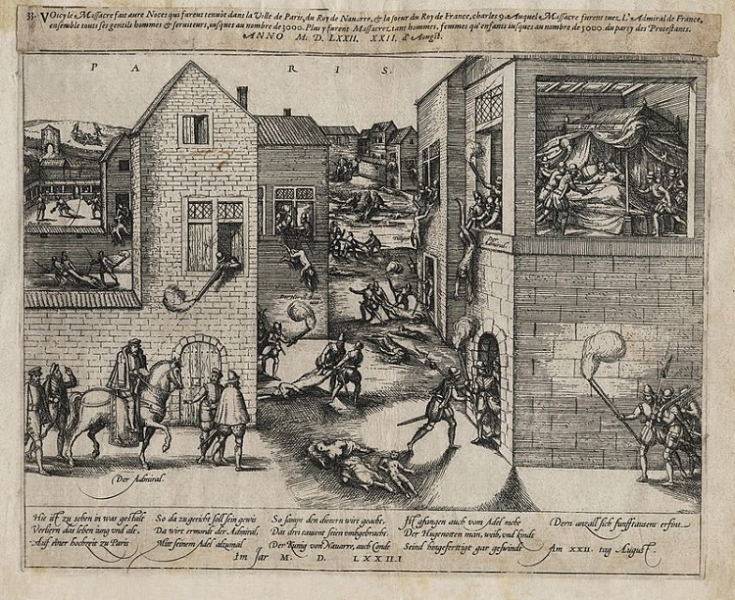 33. Voicy le Massacre fait aux Noces qui furent tenuës dans la Ville de Paris, du Roy de Navarre, & la soeur du Roy de France, charles 9. Auquel Massacre furent tuez L'Admiral de France,
ensemble touts ses gentils hommes & seruiteurs, iusques au nombre de 3000. Plus y furent Massacrez tant hommes, femmes qu'enfants iusques au nombre de 5000. du party des Protestants.
ANNO M. D. LXXII. XXII. d'Augst.
PARIS.
Der Admiral.
Hie ist zu sehen in was gestalt
Verliern das leben iung und alt.
Auf einer hochzeit zu Paris
So da zugericht soll sein gewis
Da wirt ermordt der Admiral,
Mitt seinem Adel alzumal
So sampt den dienern wirt geacht.
Das dreÿ tausent seien umbgebracht.
Der Kunig von Navarre, auch Conde
Ist gfangen auch vom Adel mehr
Der Hugenotten man, weib, und kindt
Seind hingefertigt gar geschwindt
Dern anzall sich funfftausent
Am XXII. tag August.
Im Jar M. D. LXXII.